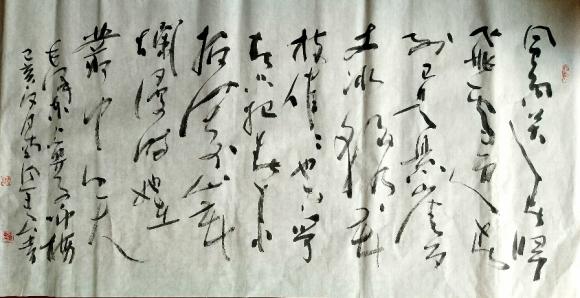 風雨送春歸
飛雪迎春
到已是懸崖百
丈冰猶有花
枝俏〻也不爭
春只把春來
報待到山花
爛漫時她在
叢中笑
毛澤東卜算子咏梅
己亥